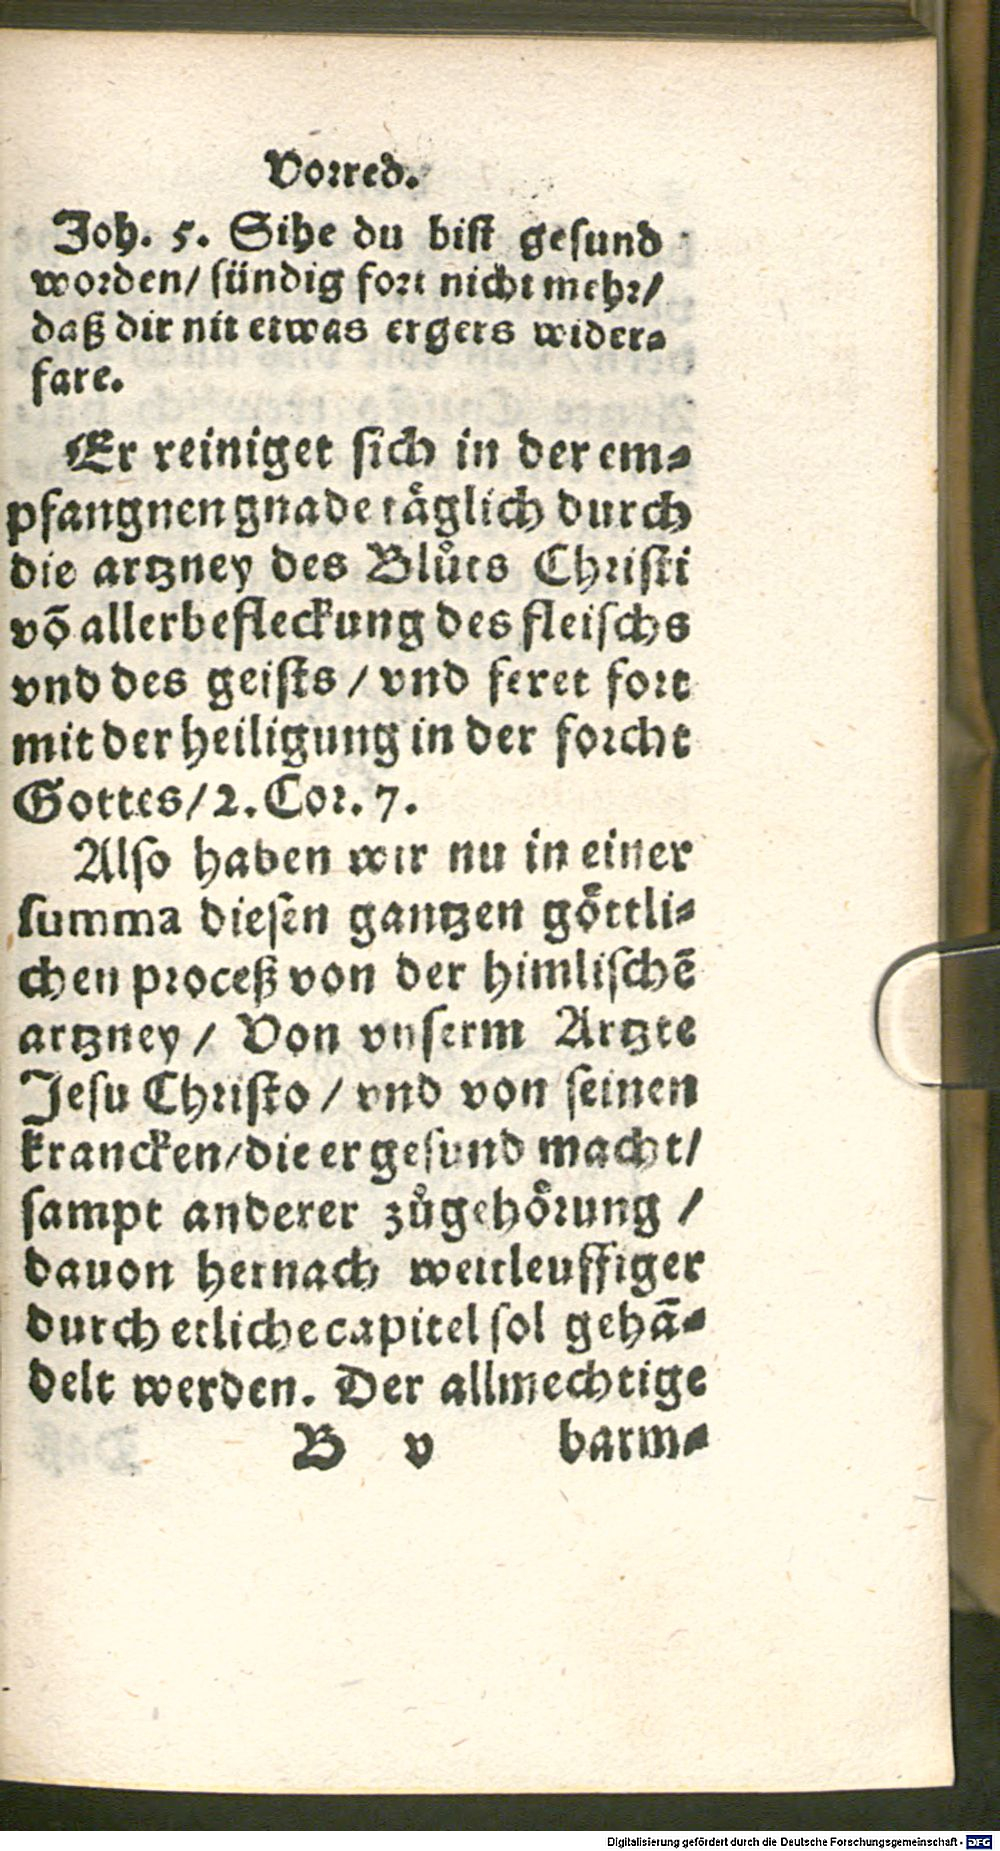 Vorred.
Joh. 5. Sihe du bist gesund
worden/ sündig fort nicht mehr/
daß dir nit etwas ergers wider⸗
fare.
Er reiniget sich in der em⸗
pfangnen gnade taͤglich durch
die artzney des Bluͦts Christi
võ aller befleckung des fleischs
vnd des geists / vnd feret fort
mit der heiligung in der forcht
Gottes/ 2. Cor. 7.
Also haben wir nu in einer
summa diesen gantzen goͤttli⸗
chen proceß von der himlischẽ
artzney / Von vnserm Artzte
Jesu Christo / vnd von seinen
krancken/ die er gesund macht/
sampt anderer zuͦgehoͤrung /
dauon hernach weitleuffiger
durch etliche capitel sol gehã⸗
delt werden. Der allmechtige
B v barm⸗
Digitalisierung gefördert durch die Deutsche Forschungsgemeinschaft - DFG